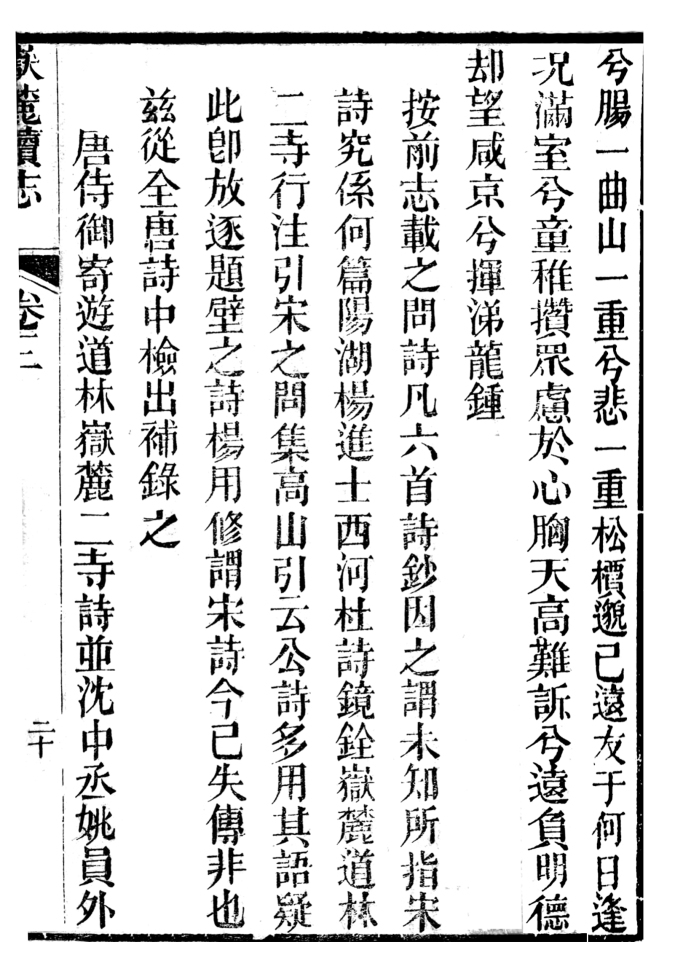 兮腸一曲山一重兮悲一重松檟邈已遠友于何日逢
况滿室兮童稚攢眾慮於心胸天高難訴兮遠負明德
却望咸京兮揮涕龍鍾
按前志載之問詩凡六首詩鈔因之謂未知所指宋
詩究係何篇陽湖楊進士西河杜詩鏡銓嶽麓道林
二寺行注引宋之問集高山引云公詩多用其語疑
此卽放逐題壁之詩楊用修謂宋詩今已失傳非也
茲從全唐詩中檢出補錄之
唐侍御寄遊道林嶽麓二寺詩並沈中丞姚員外
嶽麓續志
卷二
二十